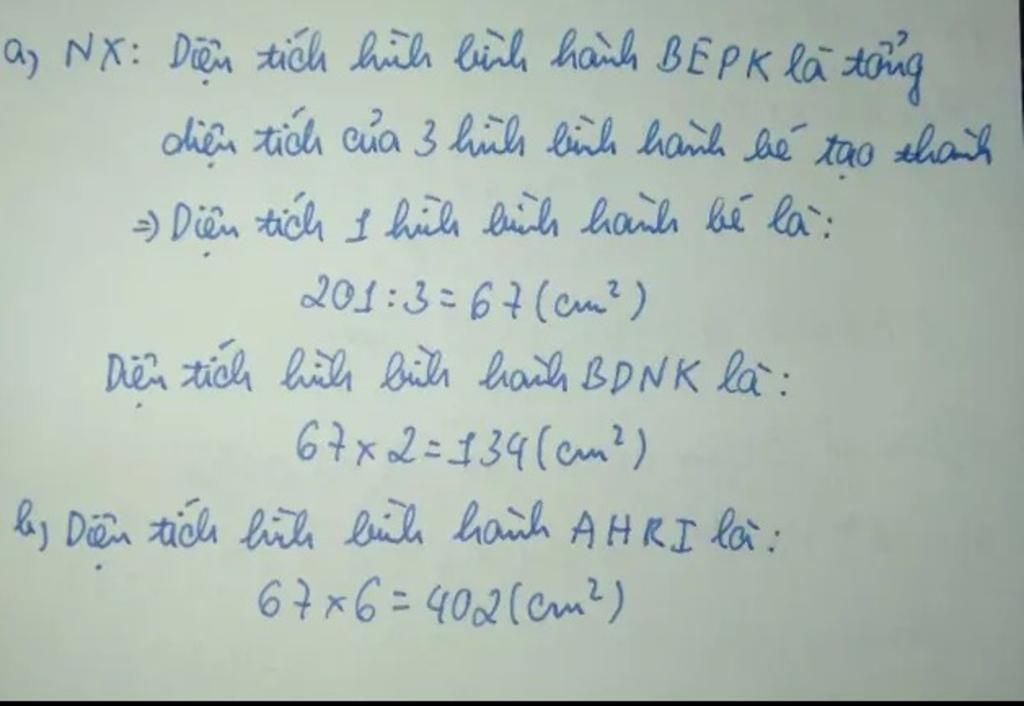 a, NX: Diện tích hình bình hành BEPK là tổng
diện tích của 3 hình bình hành bé tạo thành
=> Diện tích 1 hình bình hành bé là:
201 : 3 = 67 (cm²)
Diện tích hình bình hành BDNK là:
67 x 2 = 134 (cm²)
b, Diện tích hình bình hành AHRI là:
67 x 6 = 402 (cm²)